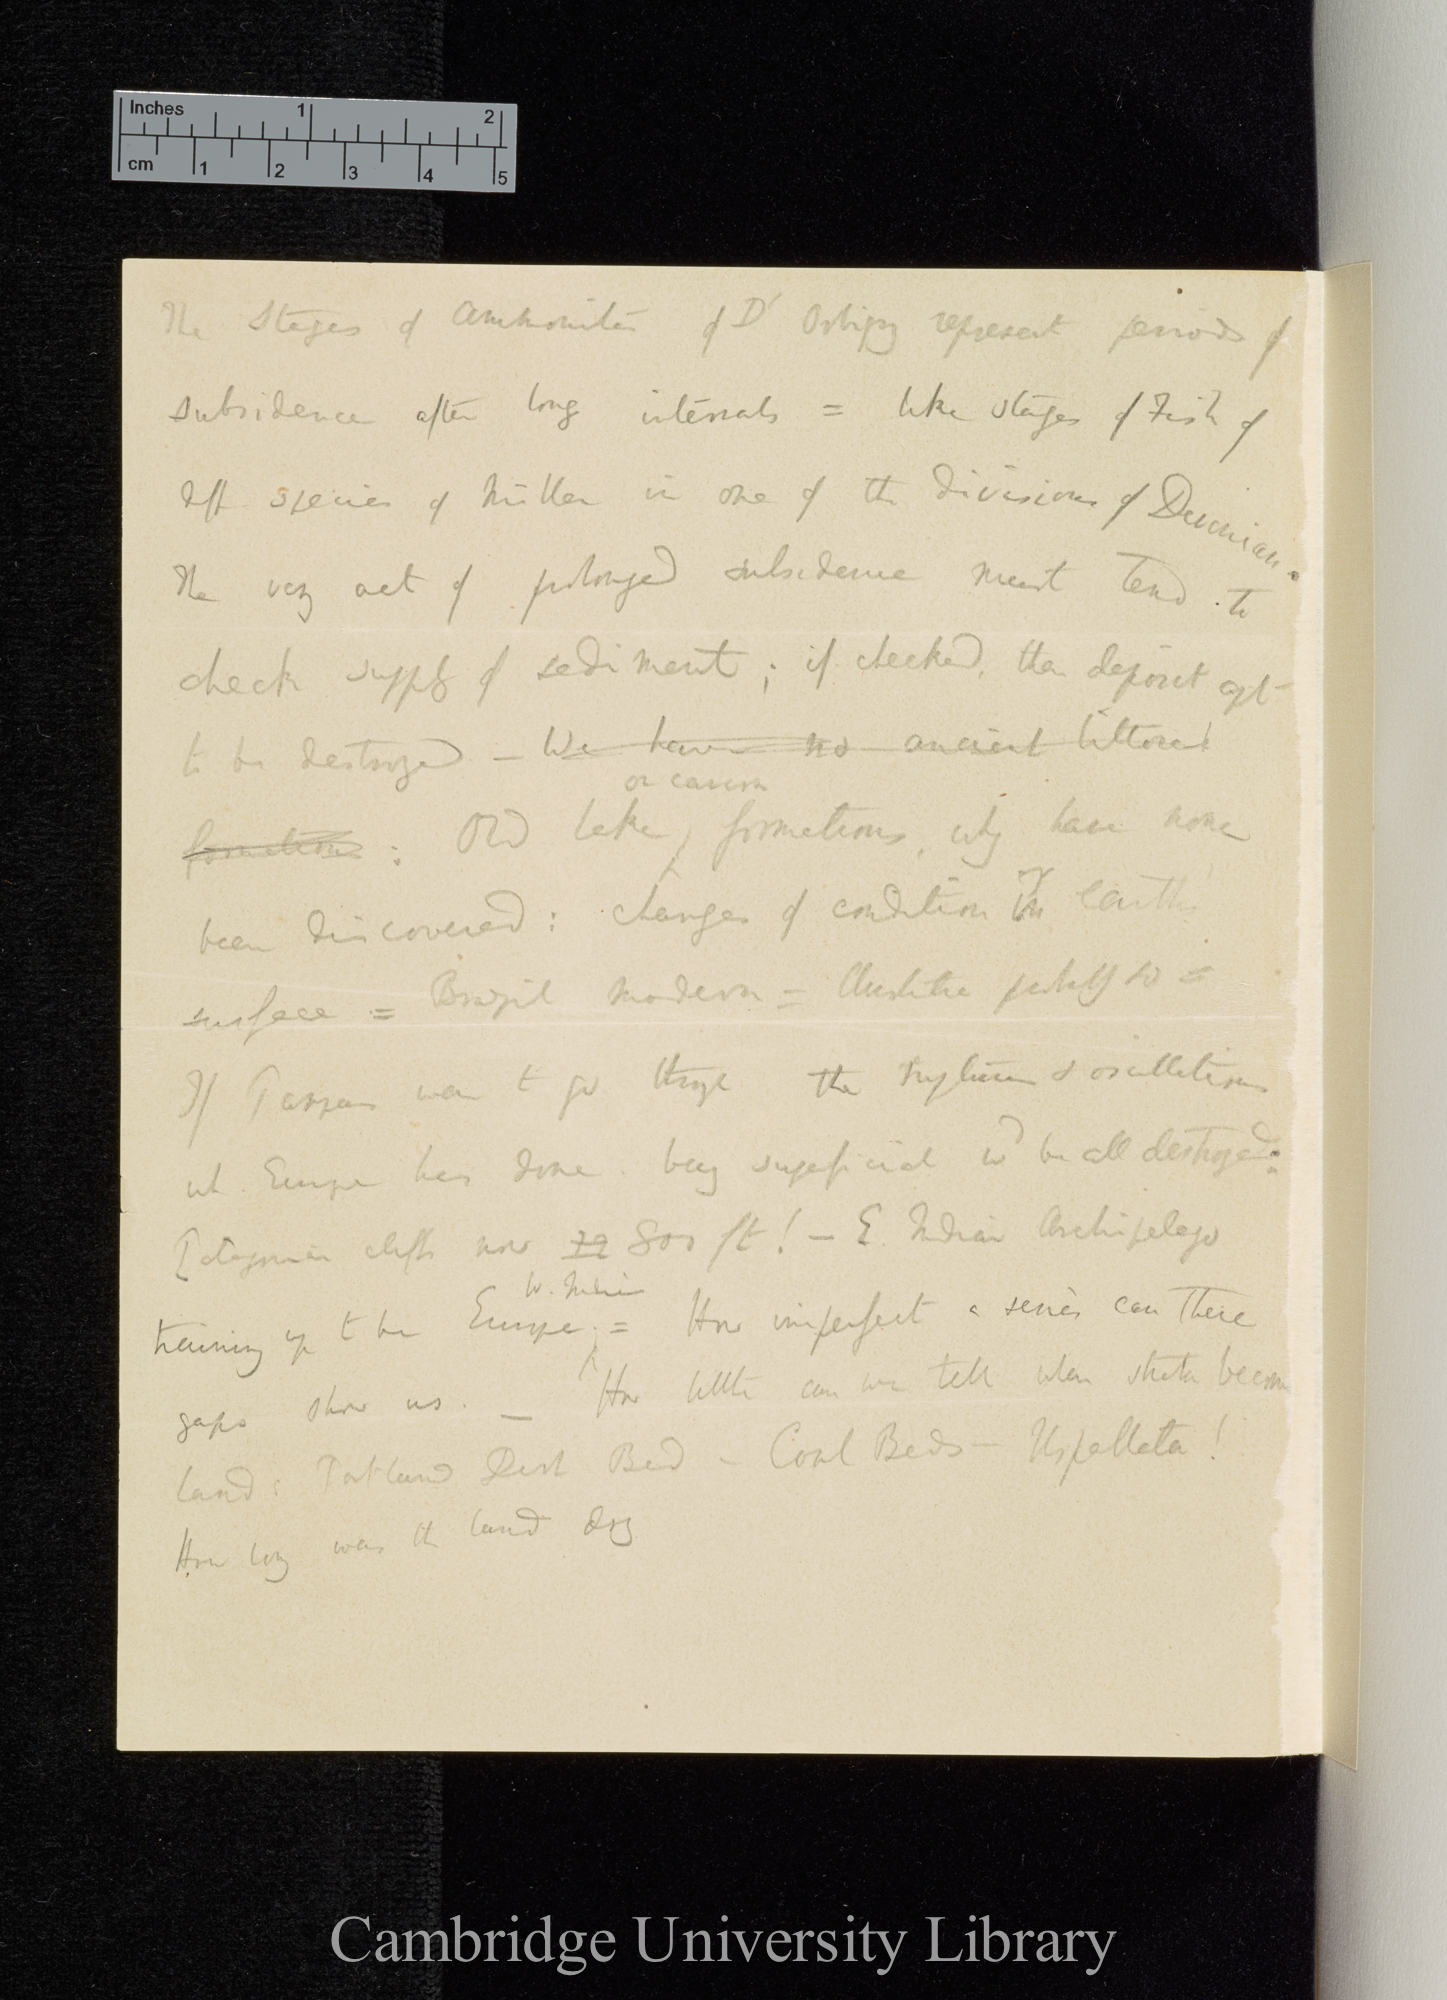 Inches 1 2
cm 1 2 3 4 5
The stages of Ammonites of D' Orbigny represent periods of
subsidence after long intervals = like stages of Fish of
diff species of Miller in one of the divisions of Devonian.
The very act of prolonged subsidence must tend to
check supply of sediment; if checked, then deposit apt
to be destroyed — We have no ancient littoral
or cavern
formations: Old lake, formations, why have none
been discovered: changes of condition in earth's
surface = Brazil modern = Australia probably so =
If Pampas were to go through the & oscillations
wh. Europe has done. being superficial wd be all destroyed:
Patagonian cliffs now 800 ft! — E. Indian Archipelago
W. Indies
training up to be Europe = How imperfect a series can there
gaps show us. — How little can we tell when strata become
land: Portland Dirt Bed — Coal Beds — Uspallata!
How long was the land dry
Cambridge University Library